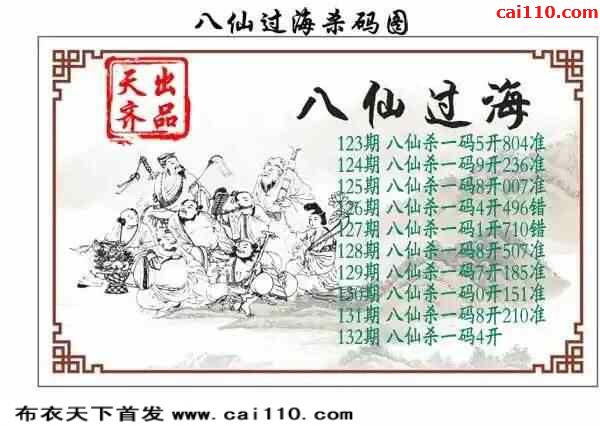 八仙过海杀码图
cai110.com
天齐出品
八仙过海
123期 八仙杀一码5开804准
124期 八仙杀一码9开236准
125期 八仙杀一码8开007准
126期 八仙杀一码4开496错
127期 八仙杀一码1开710错
128期 八仙杀一码8开507准
129期 八仙杀一码7开185准
130期 八仙杀一码0开151准
131期 八仙杀一码8开210准
132期 八仙杀一码4开
布衣天下首发 www.cai110.com